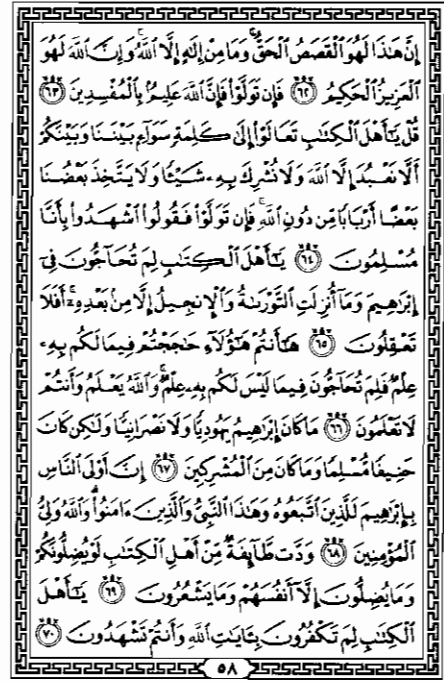 إِنَّ هَٰذَا لَهُوَ ٱلْقَصَصُ ٱلْحَقُّ ۚ وَمَا مِنْ إِلَٰهٍ إِلَّا ٱللَّهُ ۚ وَإِنَّ ٱللَّهَ لَهُوَ
ٱلْعَزِيزُ ٱلْحَكِيمُ ٦٢ فَإِن تَوَلَّوْا۟ فَإِنَّ ٱللَّهَ عَلِيمٌۢ بِٱلْمُفْسِدِينَ ٦٣
قُلْ يَٰٓأَهْلَ ٱلْكِتَٰبِ تَعَالَوْا۟ إِلَىٰ كَلِمَةٍ سَوَآءٍۭ بَيْنَنَا وَبَيْنَكُمْ
أَلَّا نَعْبُدَ إِلَّا ٱللَّهَ وَلَا نُشْرِكَ بِهِۦ شَيْـًٔا وَلَا يَتَّخِذَ بَعْضُنَا
بَعْضًا أَرْبَابًا مِّن دُونِ ٱللَّهِ ۚ فَإِن تَوَلَّوْا۟ فَقُولُوا۟ ٱشْهَدُوا۟ بِأَنَّا
مُسْلِمُونَ ٦٤ يَٰٓأَهْلَ ٱلْكِتَٰبِ لِمَ تُحَآجُّونَ فِىٓ
إِبْرَٰهِيمَ وَمَآ أُنزِلَتِ ٱلتَّوْرَىٰةُ وَٱلْإِنجِيلُ إِلَّا مِنۢ بَعْدِهِۦٓ ۚ أَفَلَا
تَعْقِلُونَ ٦٥ هَٰٓأَنتُمْ هَٰٓؤُلَآءِ حَٰجَجْتُمْ فِيمَا لَكُم بِهِۦ
عِلْمٌ فَلِمَ تُحَآجُّونَ فِيمَا لَيْسَ لَكُم بِهِۦ عِلْمٌ ۚ وَٱللَّهُ يَعْلَمُ وَأَنتُمْ
لَا تَعْلَمُونَ ٦٦ مَا كَانَ إِبْرَٰهِيمُ يَهُودِيًّا وَلَا نَصْرَانِيًّا وَلَٰكِن كَانَ
حَنِيفًا مُّسْلِمًا وَمَا كَانَ مِنَ ٱلْمُشْرِكِينَ ٦٧ إِنَّ أَوْلَى ٱلنَّاسِ
بِإِبْرَٰهِيمَ لَلَّذِينَ ٱتَّبَعُوهُ وَهَٰذَا ٱلنَّبِىُّ وَٱلَّذِينَ ءَامَنُوا۟ ۗ وَٱللَّهُ وَلِىُّ
ٱلْمُؤْمِنِينَ ٦٨ وَدَّت طَّآئِفَةٌ مِّنْ أَهْلِ ٱلْكِتَٰبِ لَوْ يُضِلُّونَكُمْ
وَمَا يُضِلُّونَ إِلَّآ أَنفُسَهُمْ وَمَا يَشْعُرُونَ ٦٩ يَٰٓأَهْلَ
ٱلْكِتَٰبِ لِمَ تَكْفُرُونَ بِـَٔايَٰتِ ٱللَّهِ وَأَنتُمْ تَشْهَدُونَ ٧٠
٥٨